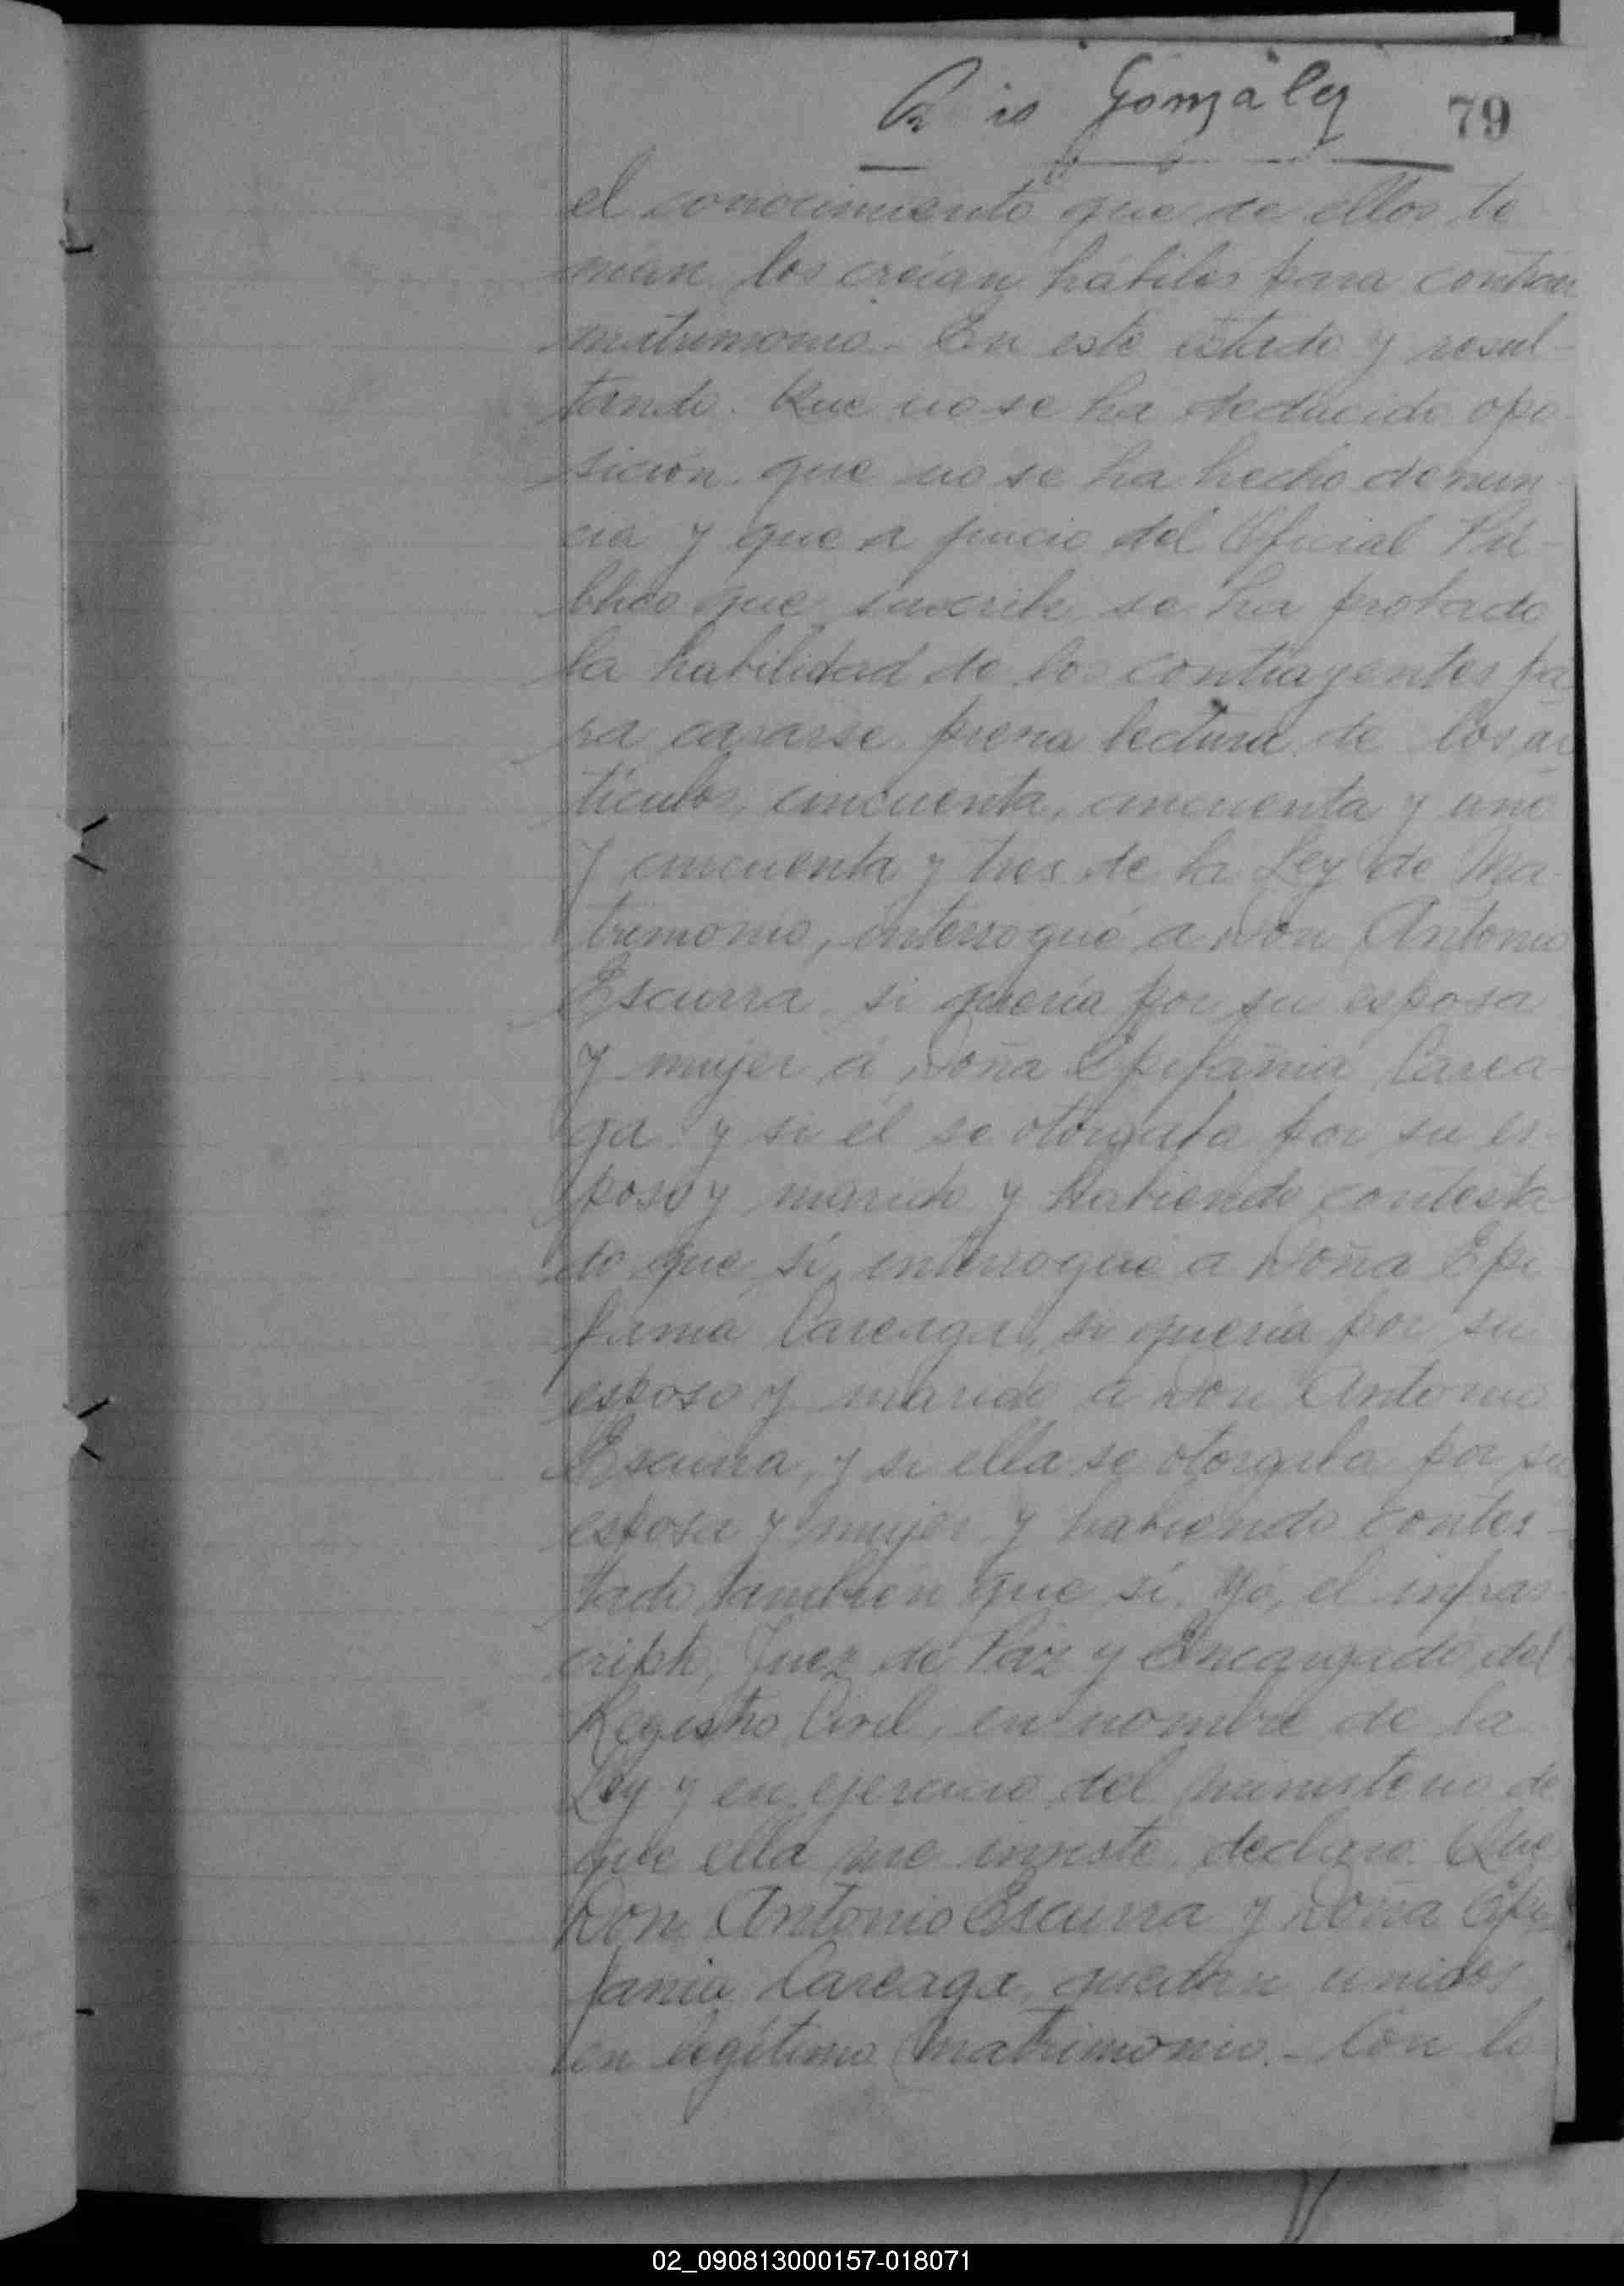 González 79
el conocimiento que de ellos te
nían los creían hábiles para contraer
matrimonio.- En este estado y resul-
tando. Que no se ha deducido opo
sición que no se ha hecho denun-
cia y que a juicio del Oficial Pú-
blico que suscribe se ha probado
la habilidad de los contrayentes pa
ra casarse previa lectura de los ar
tículos, cincuenta, cincuenta y uno
y cincuenta y tres de la Ley de Ma-
trimonio, interrogué a Don Antonio
Escurra, si quería por su esposa
y mujer a Doña Epifania Carea-
ga y si él se otorgaba por su es-
poso y marido y habiendo contesta-
do que sí, interrogué a Doña Epi
fania Careaga, si quería por su
esposo y marido a Don Antonio
Escurra, y si ella se otorgaba por su
esposa y mujer y habiendo contes-
tado también que sí. Yó, el infras-
cripto, Juez de Paz y Encargado del
Registro Civil, en nombre de la
Ley y en ejercicio del ministerio de
que ella me inviste, declaro. Que
Don Antonio Escurra y Doña Epi-
fania Careaga, quedan unidos
en legítimo matrimonio.- Con lo
02_090813000157-018071